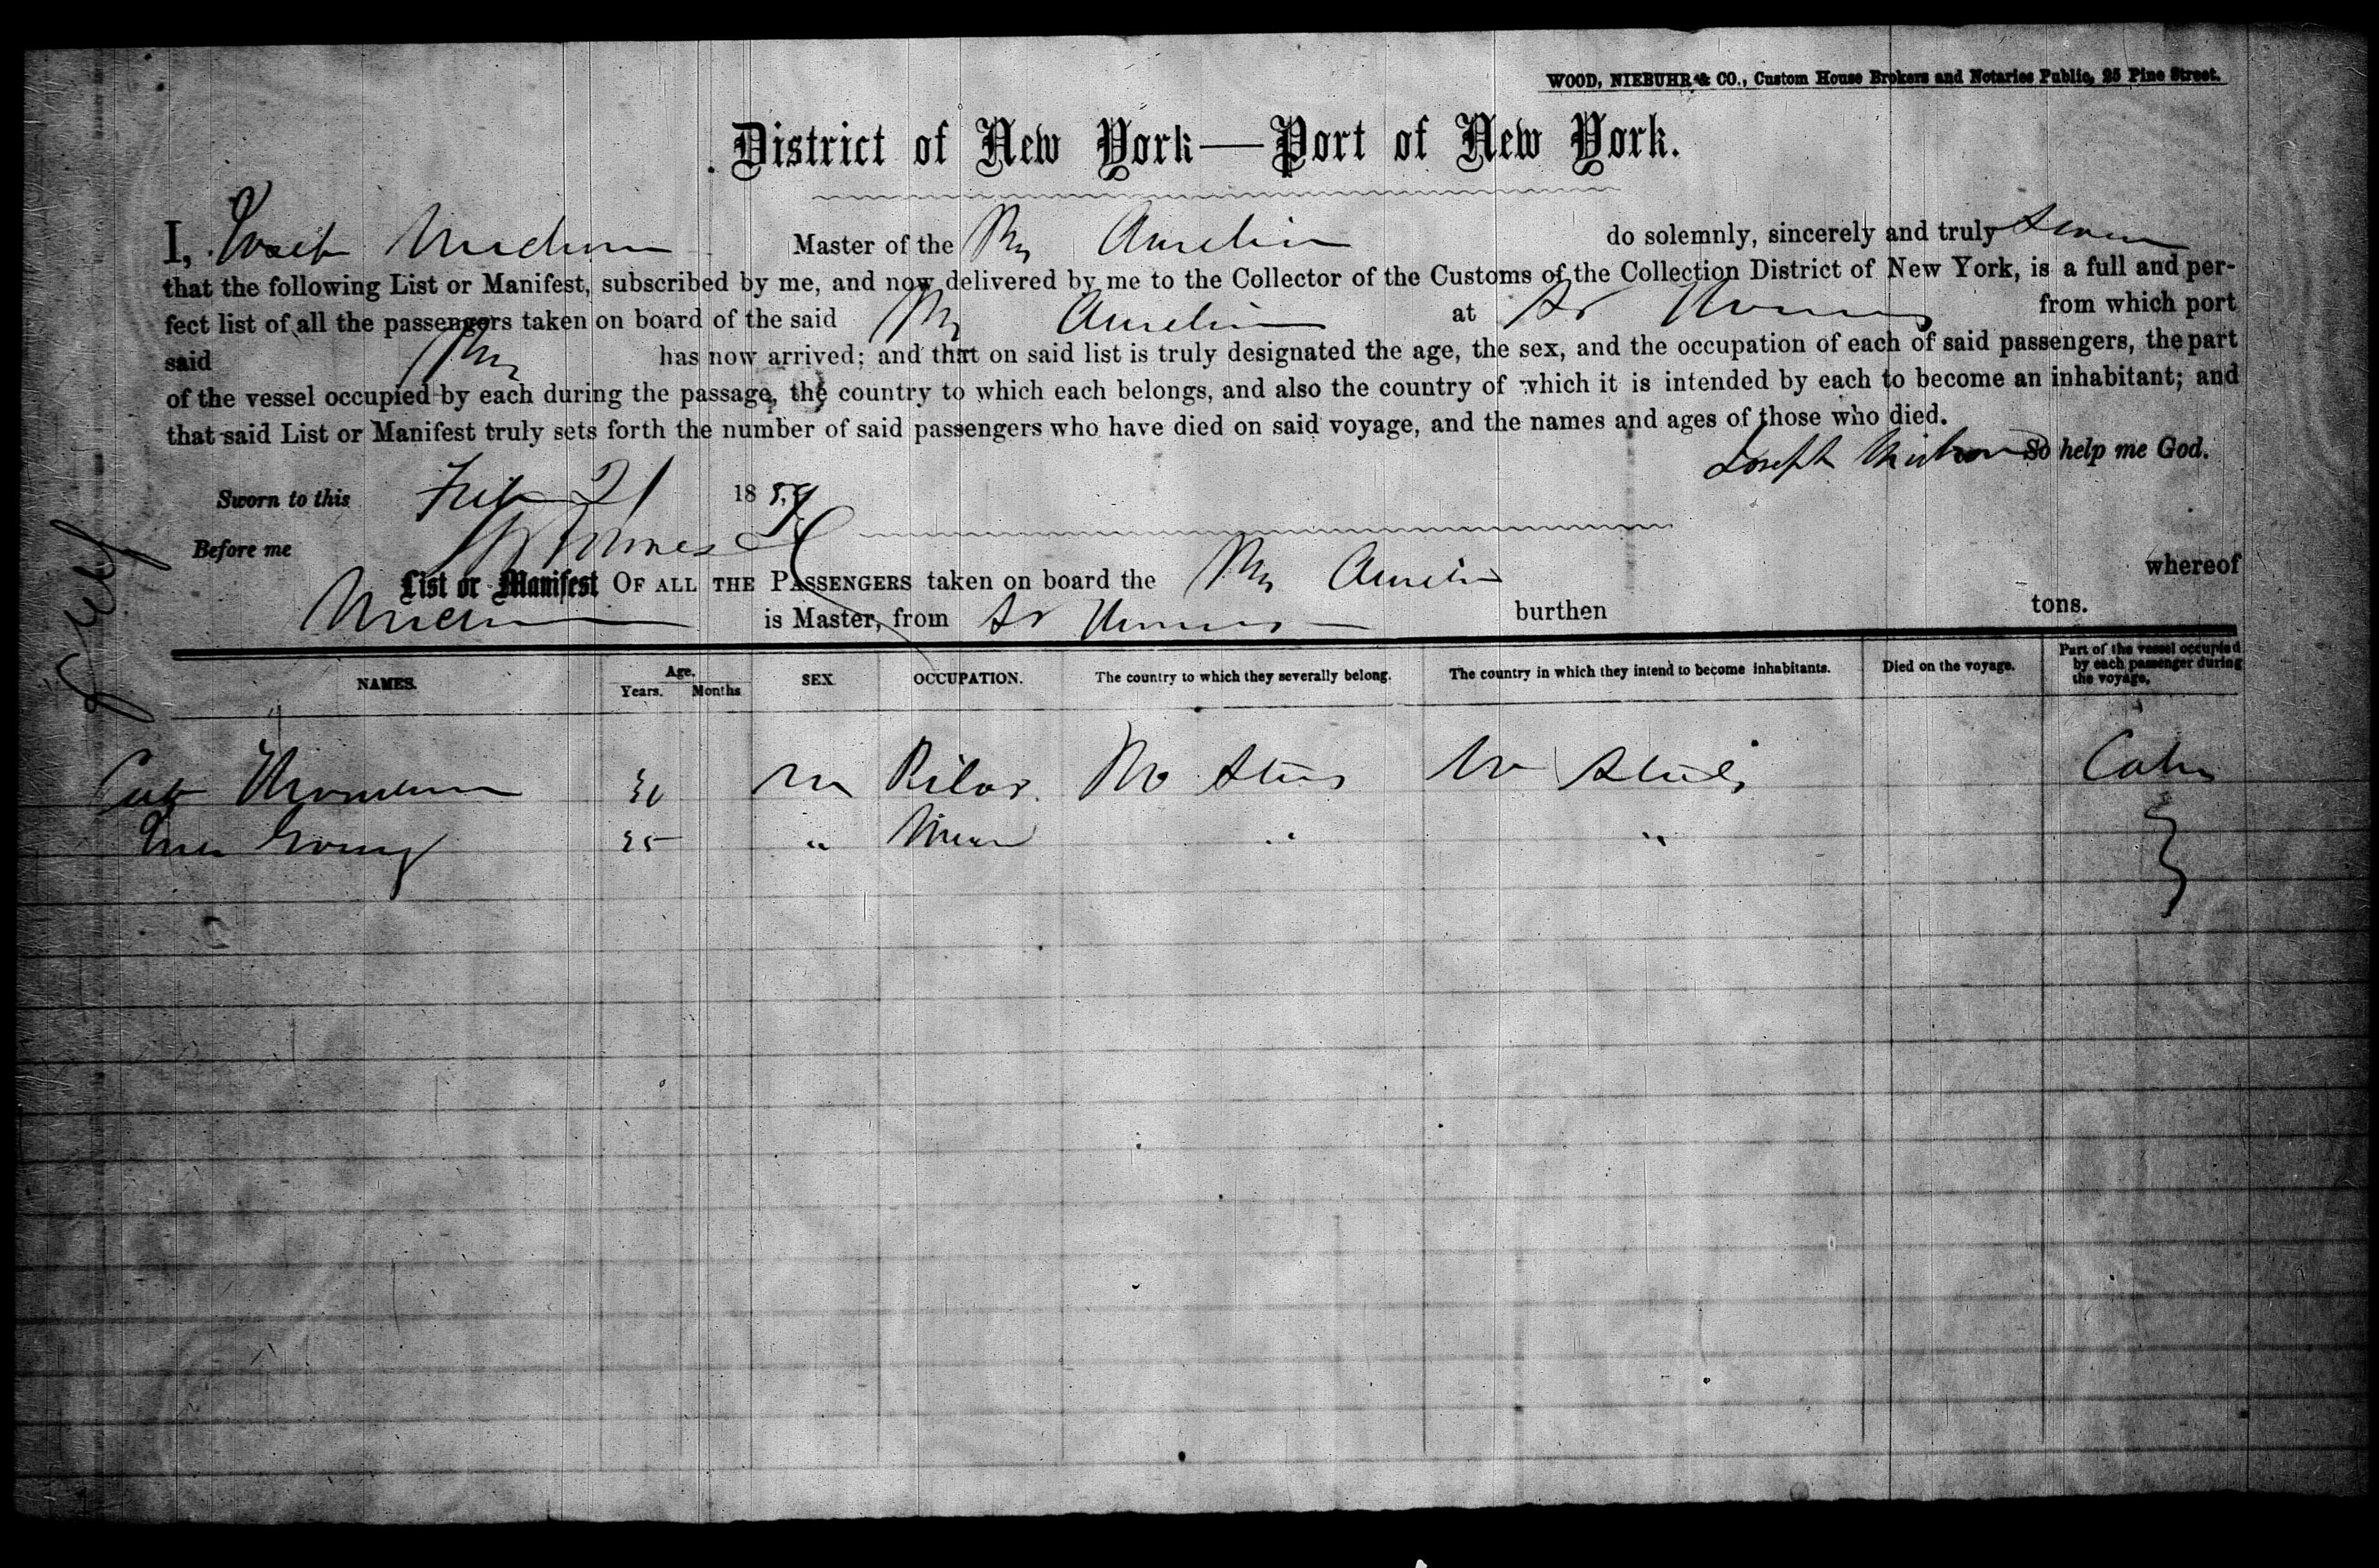 WOOD, NIEBUHR & CO., Custom House Brokers and Notaries Public, 25 Pine Street.
District of New York—Port of New York.
I, Master of the Aurelia do solemnly, sincerely and truly swear
that the following List or Manifest, subscribed by me, and now delivered by me to the Collector of the Customs of the Collection District of New York, is a full and per-
fect list of all the passengers taken on board of the said Aurelia at St Thomas from which port
said has now arrived; and that on said list is truly designated the age, the sex, and the occupation of each of said passengers, the part
of the vessel occupied by each during the passage, the country to which each belongs, and also the country of which it is intended by each to become an inhabitant; and
that said List or Manifest truly sets forth the number of said passengers who have died on said voyage, and the names and ages of those who died.
Joseph So help me God.
Sworn to this Feb 21 1859
Before me
List or Manifest OF ALL THE PASSENGERS taken on board the Aurelia whereof
is Master, from St Thomas burthen tons.
NAMES. Age. Years. Months SEX. OCCUPATION. The country to which they severally belong. The country in which they intend to become inhabitants. Died on the voyage. Part of the vessel occupied by each passenger during the voyage.
Capt 30 M Pilot. States States Cabin
Young 25 " " "